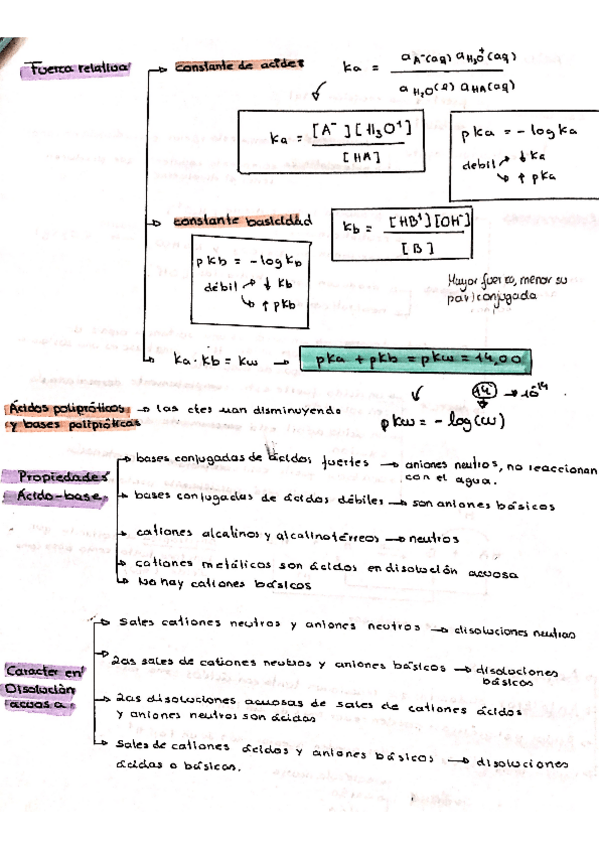 Fuerza relativa → constante de acidez Ka = a A⁻(aq) a H₃O⁺(aq) / a H₂O(l) a HA(aq)
Ka = [A⁻][H₃O⁺] / [HA]
pKa = - log Ka
débil → ↓ Ka
↳ ↑ pKa
→ constante basicidad Kb = [HB⁺][OH⁻] / [B]
pKb = - log Kb
débil → ↓ Kb
↳ ↑ pKb
Mayor fuerza, menor su
par conjugada
→ Ka · Kb = Kw → pKa + pKb = pKw = 14,00
14 → 10⁻¹⁴
pKw = - log(w)
Ácidos polipróticos → las ctes van disminuyendo
y bases polipróticas
Propiedades
Ácido-base
→ bases conjugadas de ácidos fuertes → aniones neutros, no reaccionan
con el agua.
→ bases conjugadas de ácidos débiles → son aniones básicos
→ cationes alcalinos y alcalinotérreos → neutros
→ cationes metálicos son ácidos en disolución acuosa
→ No hay cationes básicos
Caracter en
Disolución
acuosa
→ Sales cationes neutros y aniones neutros → disoluciones neutras
→ Las sales de cationes neutros y aniones básicos → disoluciones
básicos
→ Las disoluciones acuosas de sales de cationes ácidos
y aniones neutros son ácidos
→ Sales de cationes ácidos y aniones básicos → disoluciones
ácidas o básicas.